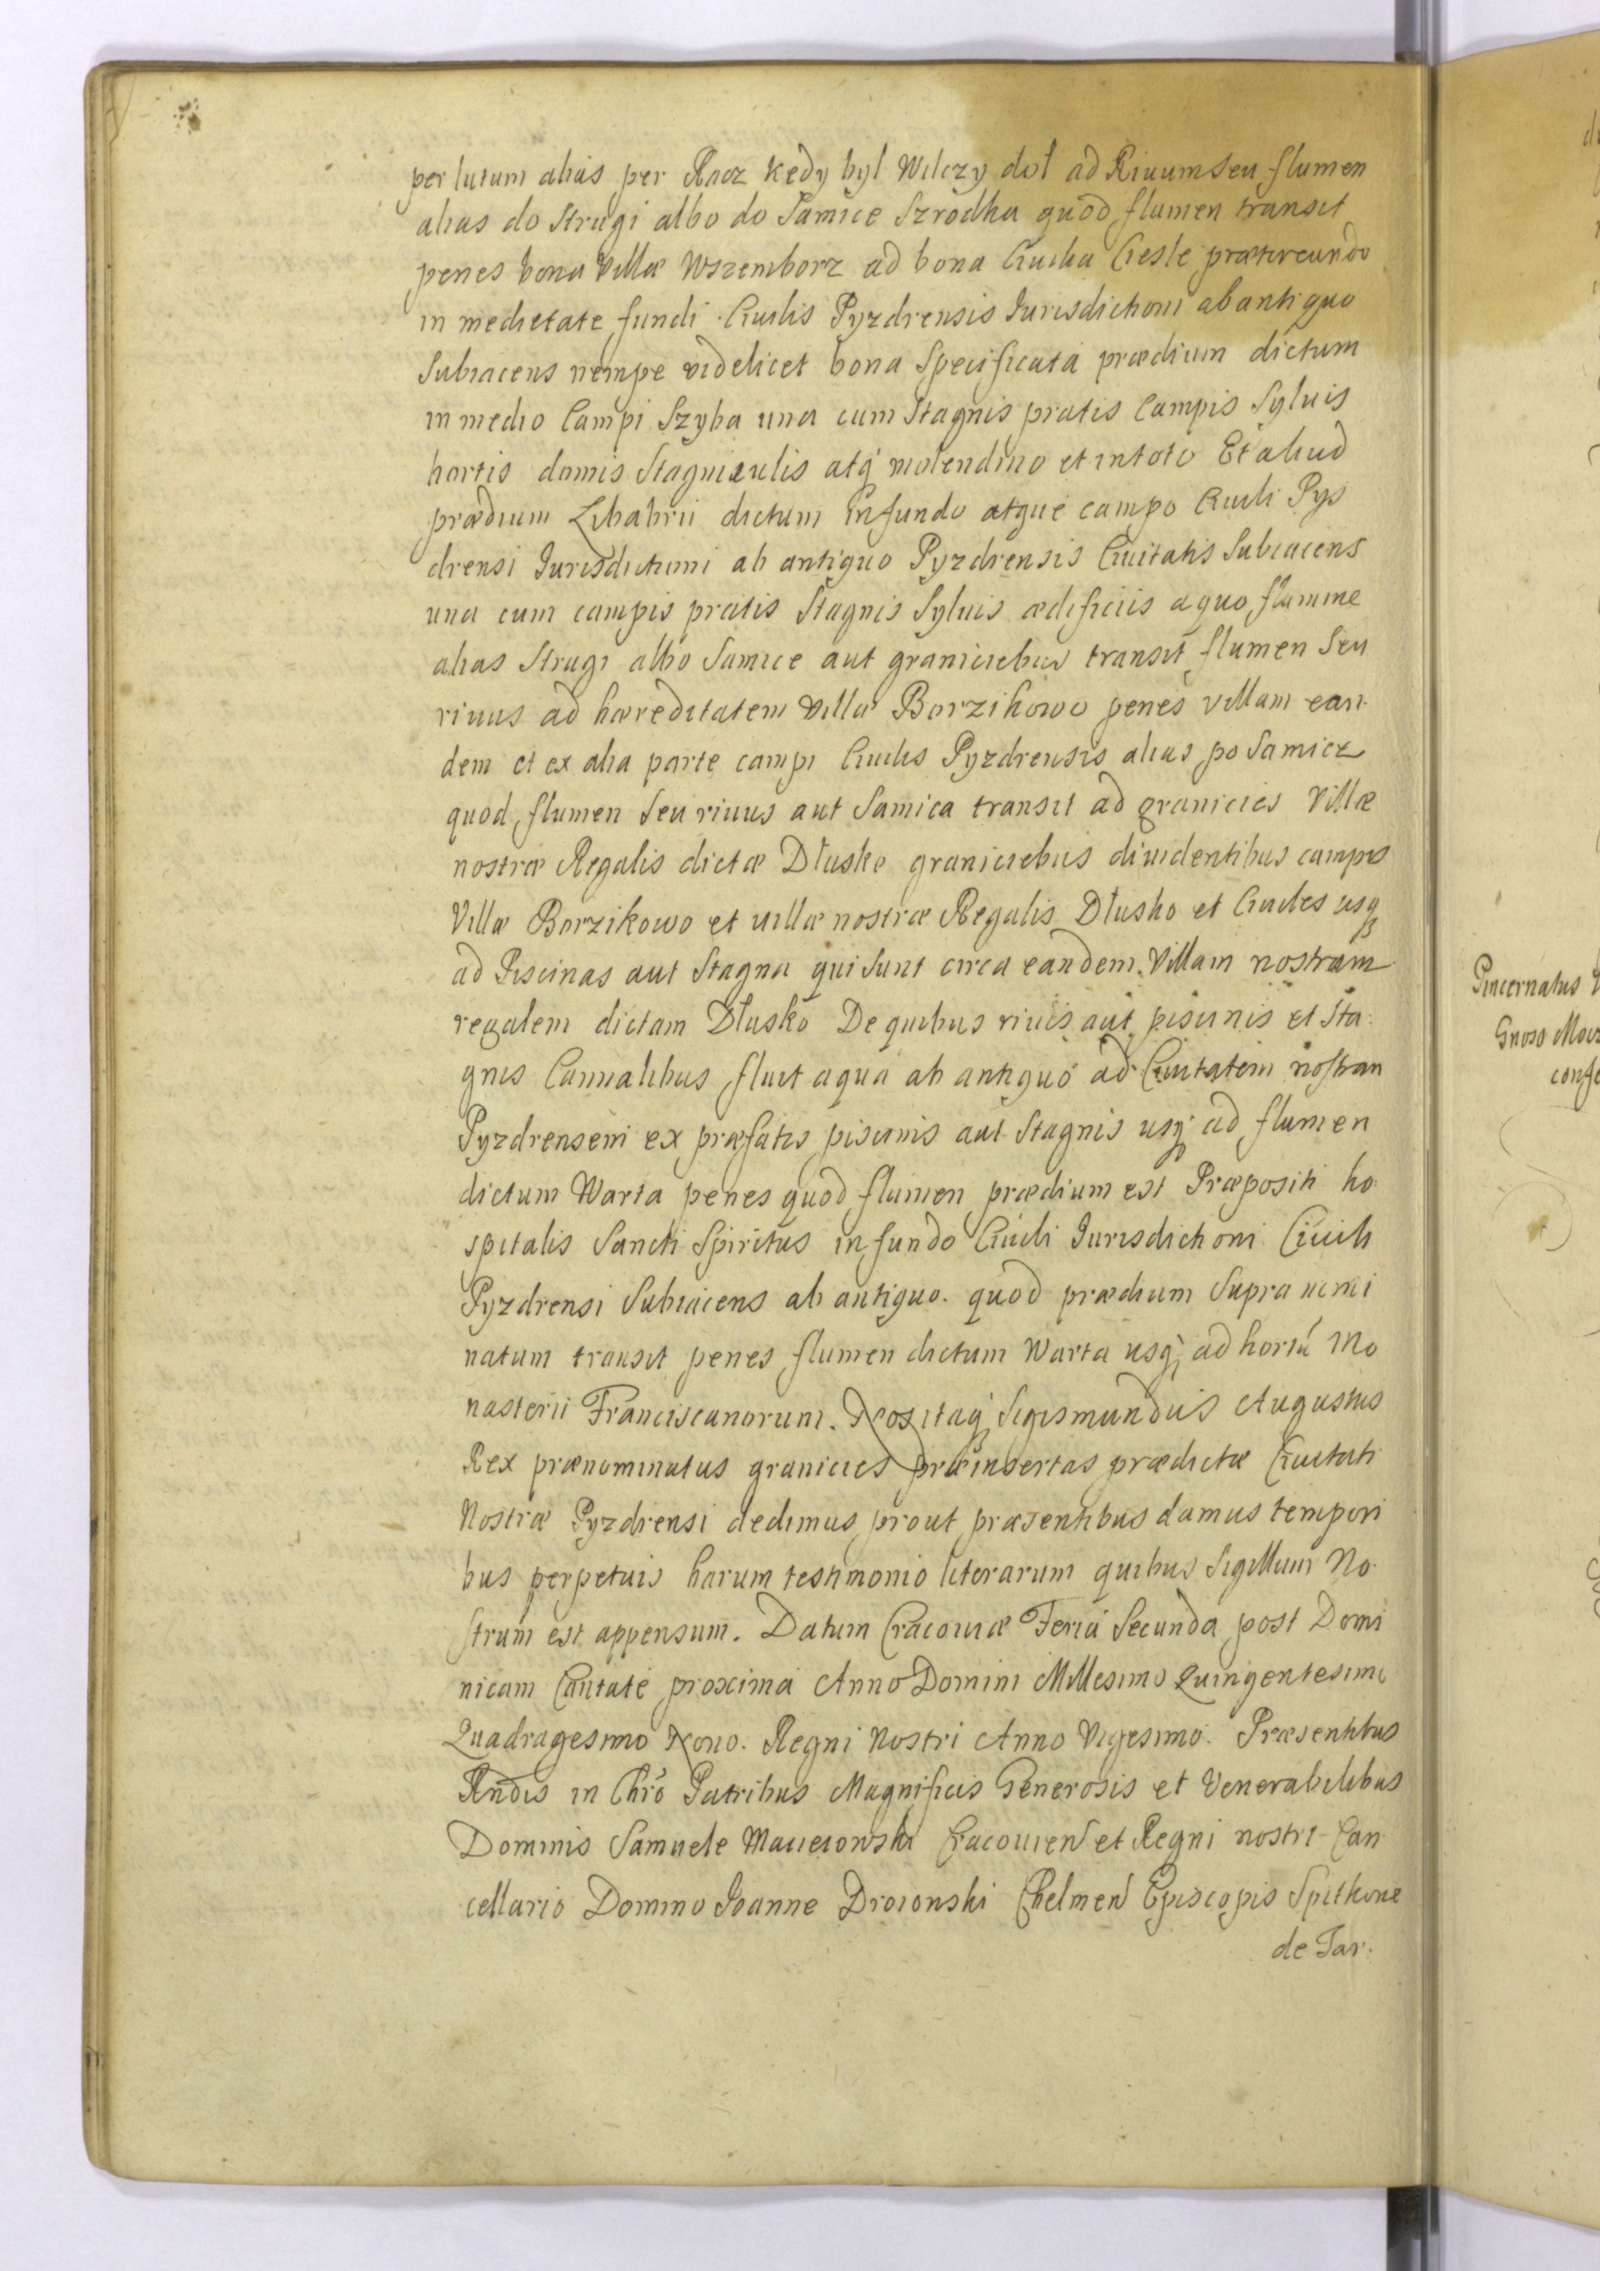 per lutum alias per Racz kędy był Wilczy doł ad Riuum seu flumen
alias do Strugi albo do Samice Szrodka quod flumen transit
penes bona Villæ Wszemborz ad bona Ciuilia Ciesle prætereundo
in medietate fundi Ciuilis Pyzdrensis Iurisdictioni ab antiquo
Subiacens nempe videlicet bona Specificata prædium dictum
in medio Campi Szyba una cum Stagnis pratis Campis Syluis
hortis domis Stagniculis atq molendino et in toto Et aliud
prædium Zibabrii dictum in fundo atque campo Ciuili Pys
drensi Iurisdictioni ab antiquo Pyzdrensis Ciuitatis Subiacens
una cum campis pratis Stagnis Syluis ædificiis a quo flumine
alias Strugi albo Samice aut graniciebus transit flumen seu
riuus ad hæreditatem Villæ Borzikowo penes villam ean
dem et ex alia parte campi Ciuilis Pyzdrensis alias po Samicz
quod flumen seu riuus aut Samica transit ad granicies Villæ
nostræ Regalis dictæ Dłuske graniciebus diuidentibus campos
Villæ Borzikowo et uillæ nostræ Regalis Dłusko et Ciuiles usq
ad Piscinas aut Stagna qui sunt circa eandem Villam nostram
regalem dictam Dłusko De quibus riuis aut piscinis et Sta
gnis Cannalibus fluit aqua ab antiquo ad Ciuitatem nostram
Pyzdrensem ex præfatis piscinis aut Stagnis usq ad flumen
dictum Warta penes quod flumen prædium est Præpositi ho
spitalis Sancti Spiritus in fundo Ciuili Iurisdictioni Ciuili
Pyzdrensi Subiacens ab antiquo. quod prædium Supra nomi
natum transit penes flumen dictum Warta usq ad hortu Mo
nasterii Franciscanorum. Nos itaq Sigismundus Augustus
Rex prænominatus granicies præinsertas prædictæ Ciuitati
Nostræ Pyzdrensi dedimus prout præsentibus damus tempori
bus perpetuis harum testimonio literarum quibus Sigillum No
strum est appensum. Datum Cracouiæ Feria Secunda post Domi
nicam Cantate proxima Anno Domini Millesimo Quingentesimo
Quadragesimo Nono. Regni Nostri Anno Vigesimo. Præsentibus
Rndis in Chro Patribus Magnificis Generosis et Venerabilibus
Dominis Samuele Macieiowski Cracouien et Regni nostri Can
cellario Domino Ioanne Droionski Chelmen Episcopis Spithone
de Tar.
Pincernatus
Gnoso